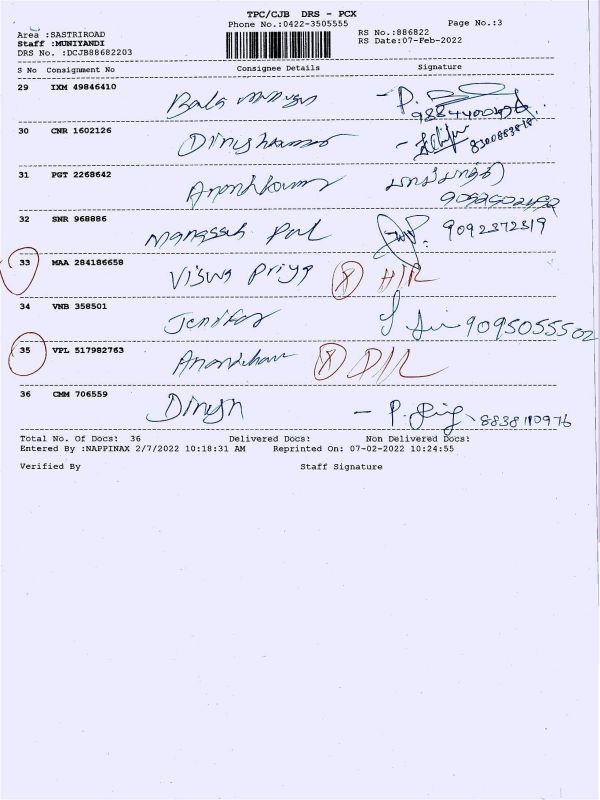 TPC/CJB DRS - PCX
Phone No.:0422-3505555 Page No.:3
Area :SASTRIROAD RS No.:886822
Staff :MUNIYANDI RS Date:07-Feb-2022
DRS No. :DCJB88682203
S No Consignment No Consignee Details Signature
29 IXM 49846410 Bala murugan - P.
30 CNR 1602126 Dineshkumar 8300883818
31 PGT 2268642 Anandkumar
32 SNR 968886 9092372319
33 MAA 284186658 Viswa Priya X
34 VNB 358501 Jenifer 9095055502
35 VPL 517982763 X
36 CMM 706559 Dinesh - P. 8838110976
Total No. Of Docs: 36 Delivered Docs: Non Delivered Docs:
Entered By :NAPPINAX 2/7/2022 10:18:31 AM Reprinted On: 07-02-2022 10:24:55
Verified By Staff Signature